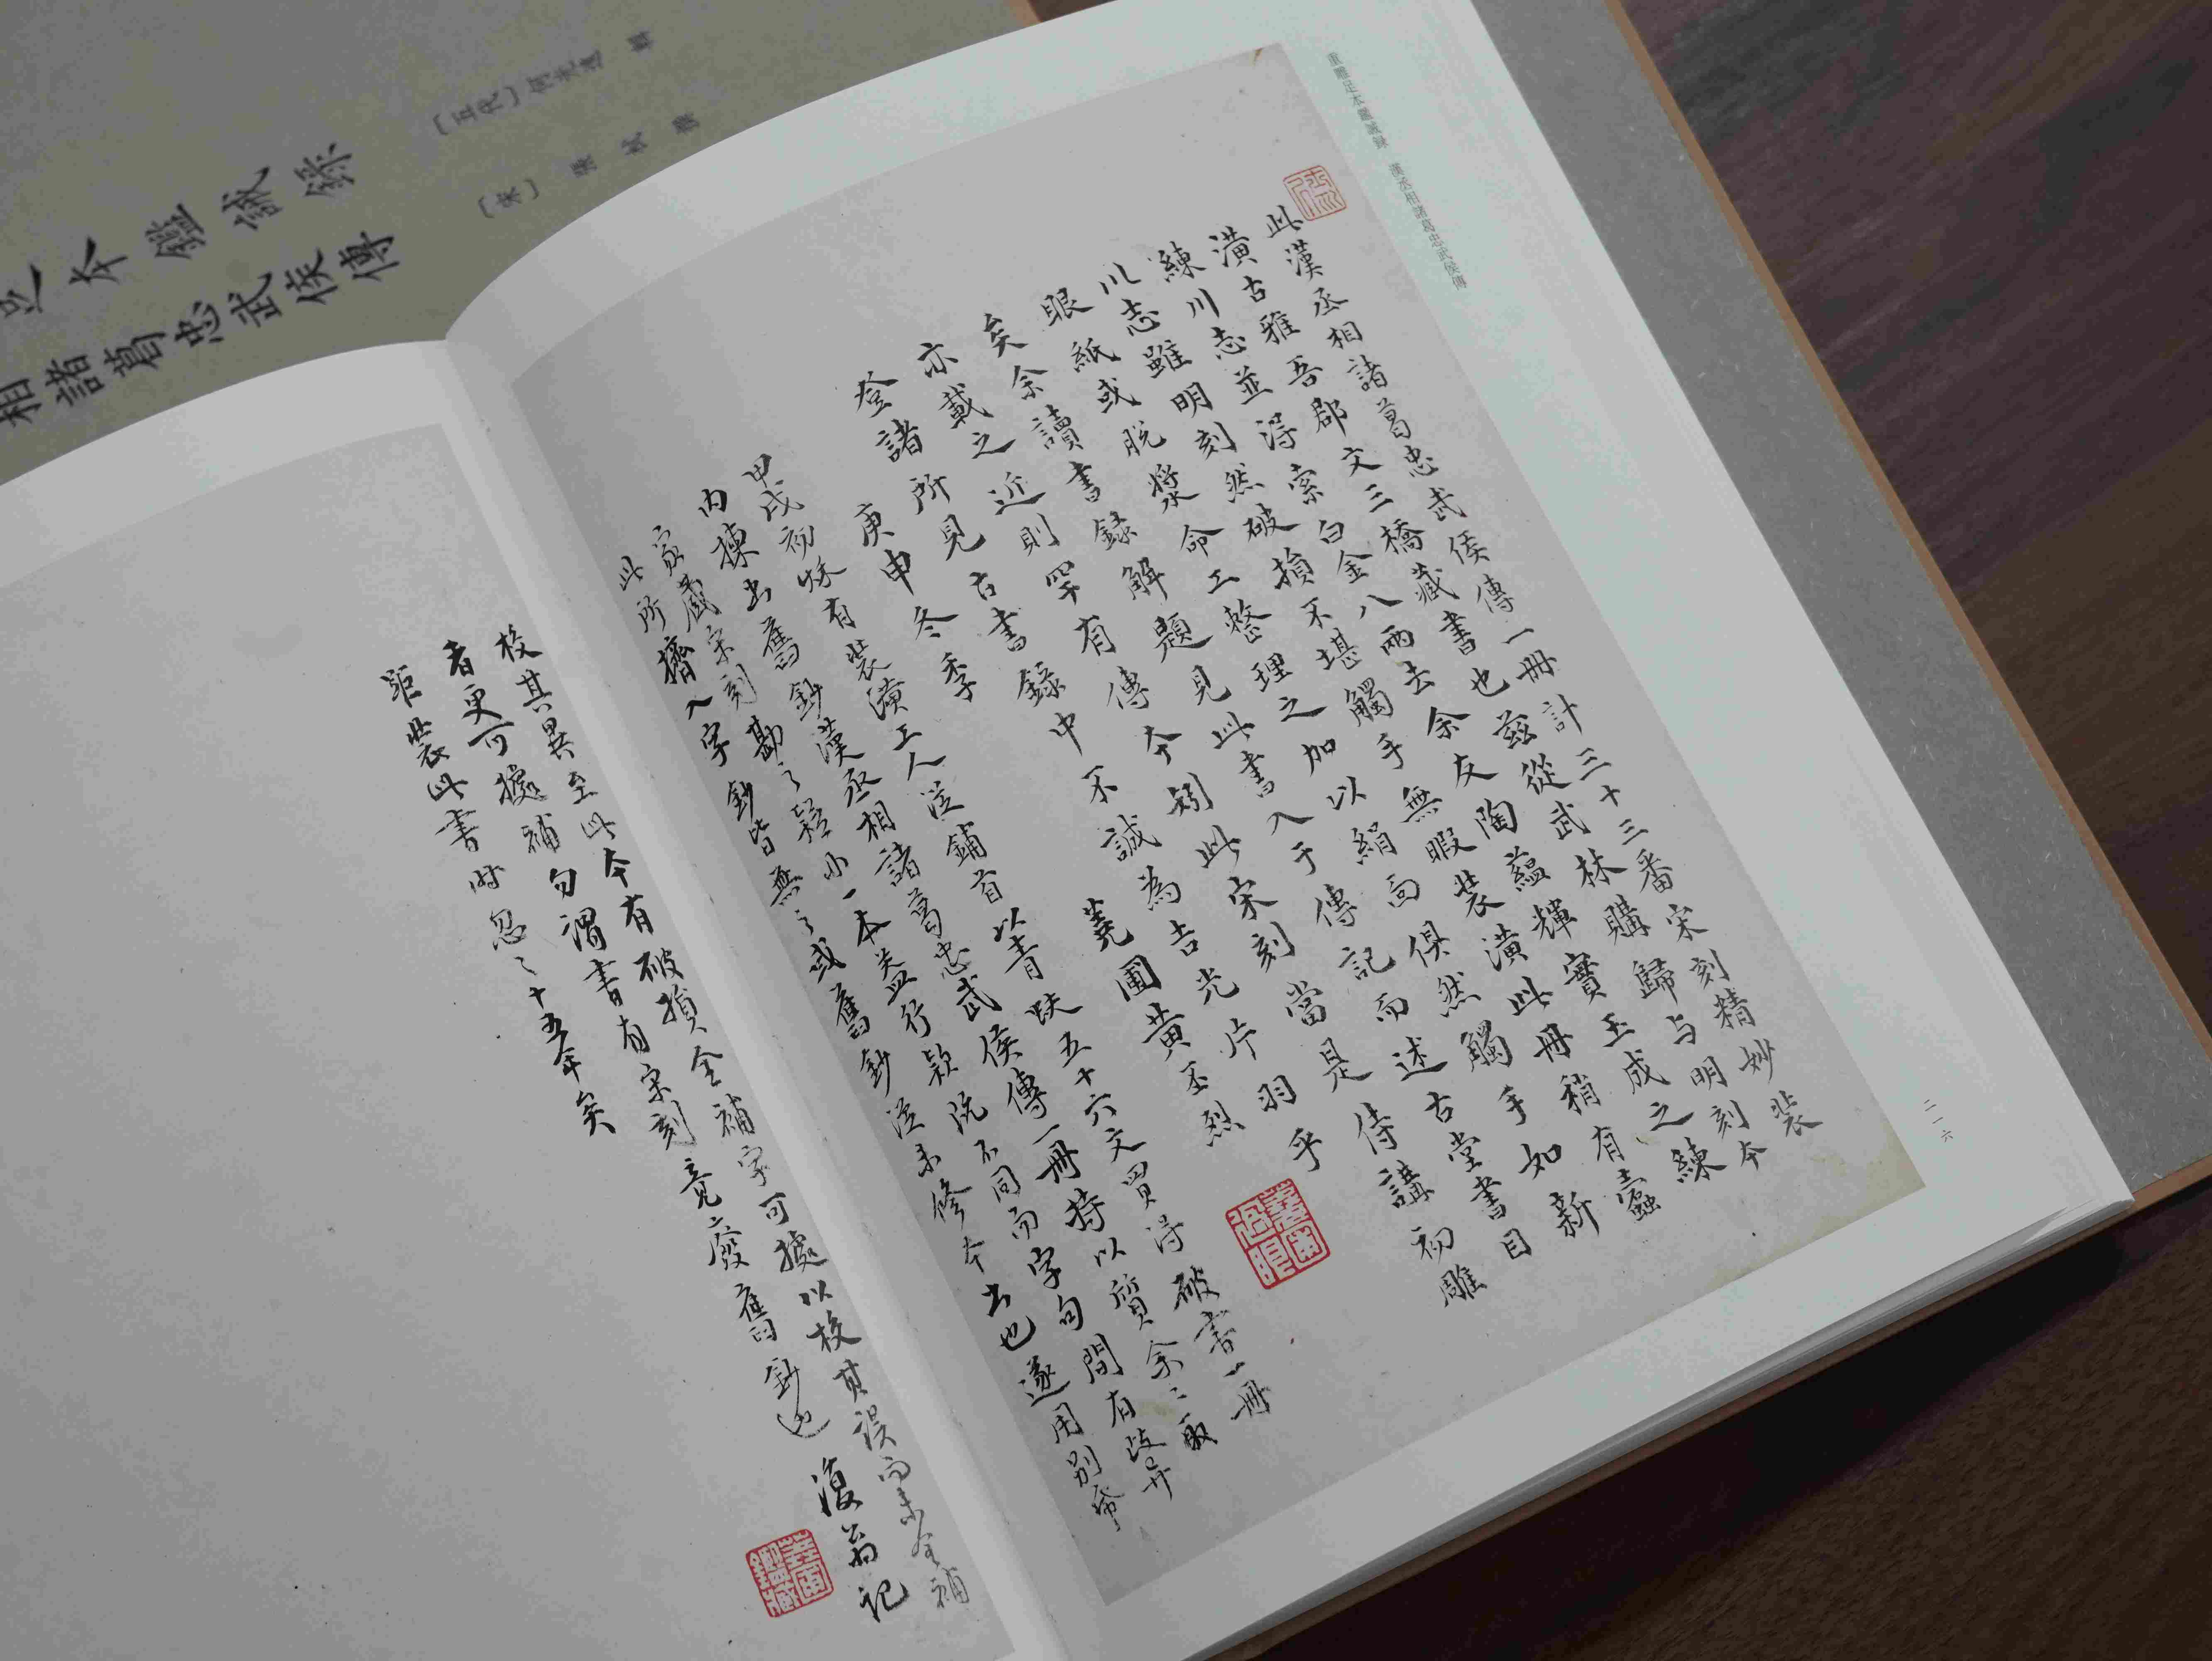 重雕足本鑑誡錄 漢丞相諸葛忠武侯傳
此漢丞相諸葛忠武侯傳一冊計三十三番宋刻精妙裝
潢古雅吾郡文三橋藏書也茲從武林購歸与明刻本
練川志並得索白金八兩去余友陶蘊輝實玉成之練
川志雖明刻然破損不堪觸手無暇裝潢此冊稍有蠹
眼紙或脫漿命工整理之加以絹面俱然觸手如新
矣余讀書錄解題見此書入于傳記而述古堂書目
亦載之近則罕有傳本矧此宋刻當是侍講初雕
登諸所見古書錄中不誠為吉光片羽乎
庚申冬季 蕘圃黃丕烈
蕘圃過眼
甲戌初秋有裝潢工人從鋪首以青蚨五十六文買得破書一冊
內揀出舊鈔漢丞相諸葛忠武侯傳一冊持以質余〻取
家藏宋刻勘之鬆小一本蓋行款既不同而字句間有歧異
此所擠入字鈔皆無之或舊鈔從未修本出也遂用別紙
二一六
校其異至此本有破損全補字可據以校其誤而未全補
者更可據補勿謂書有宋刻竟廢舊鈔也 復翁記
距裝此書時忽〻十五年矣
足本鑑誡錄
相諸葛忠武侯傳
〔五代〕何光遠
〔宋〕張栻 撰